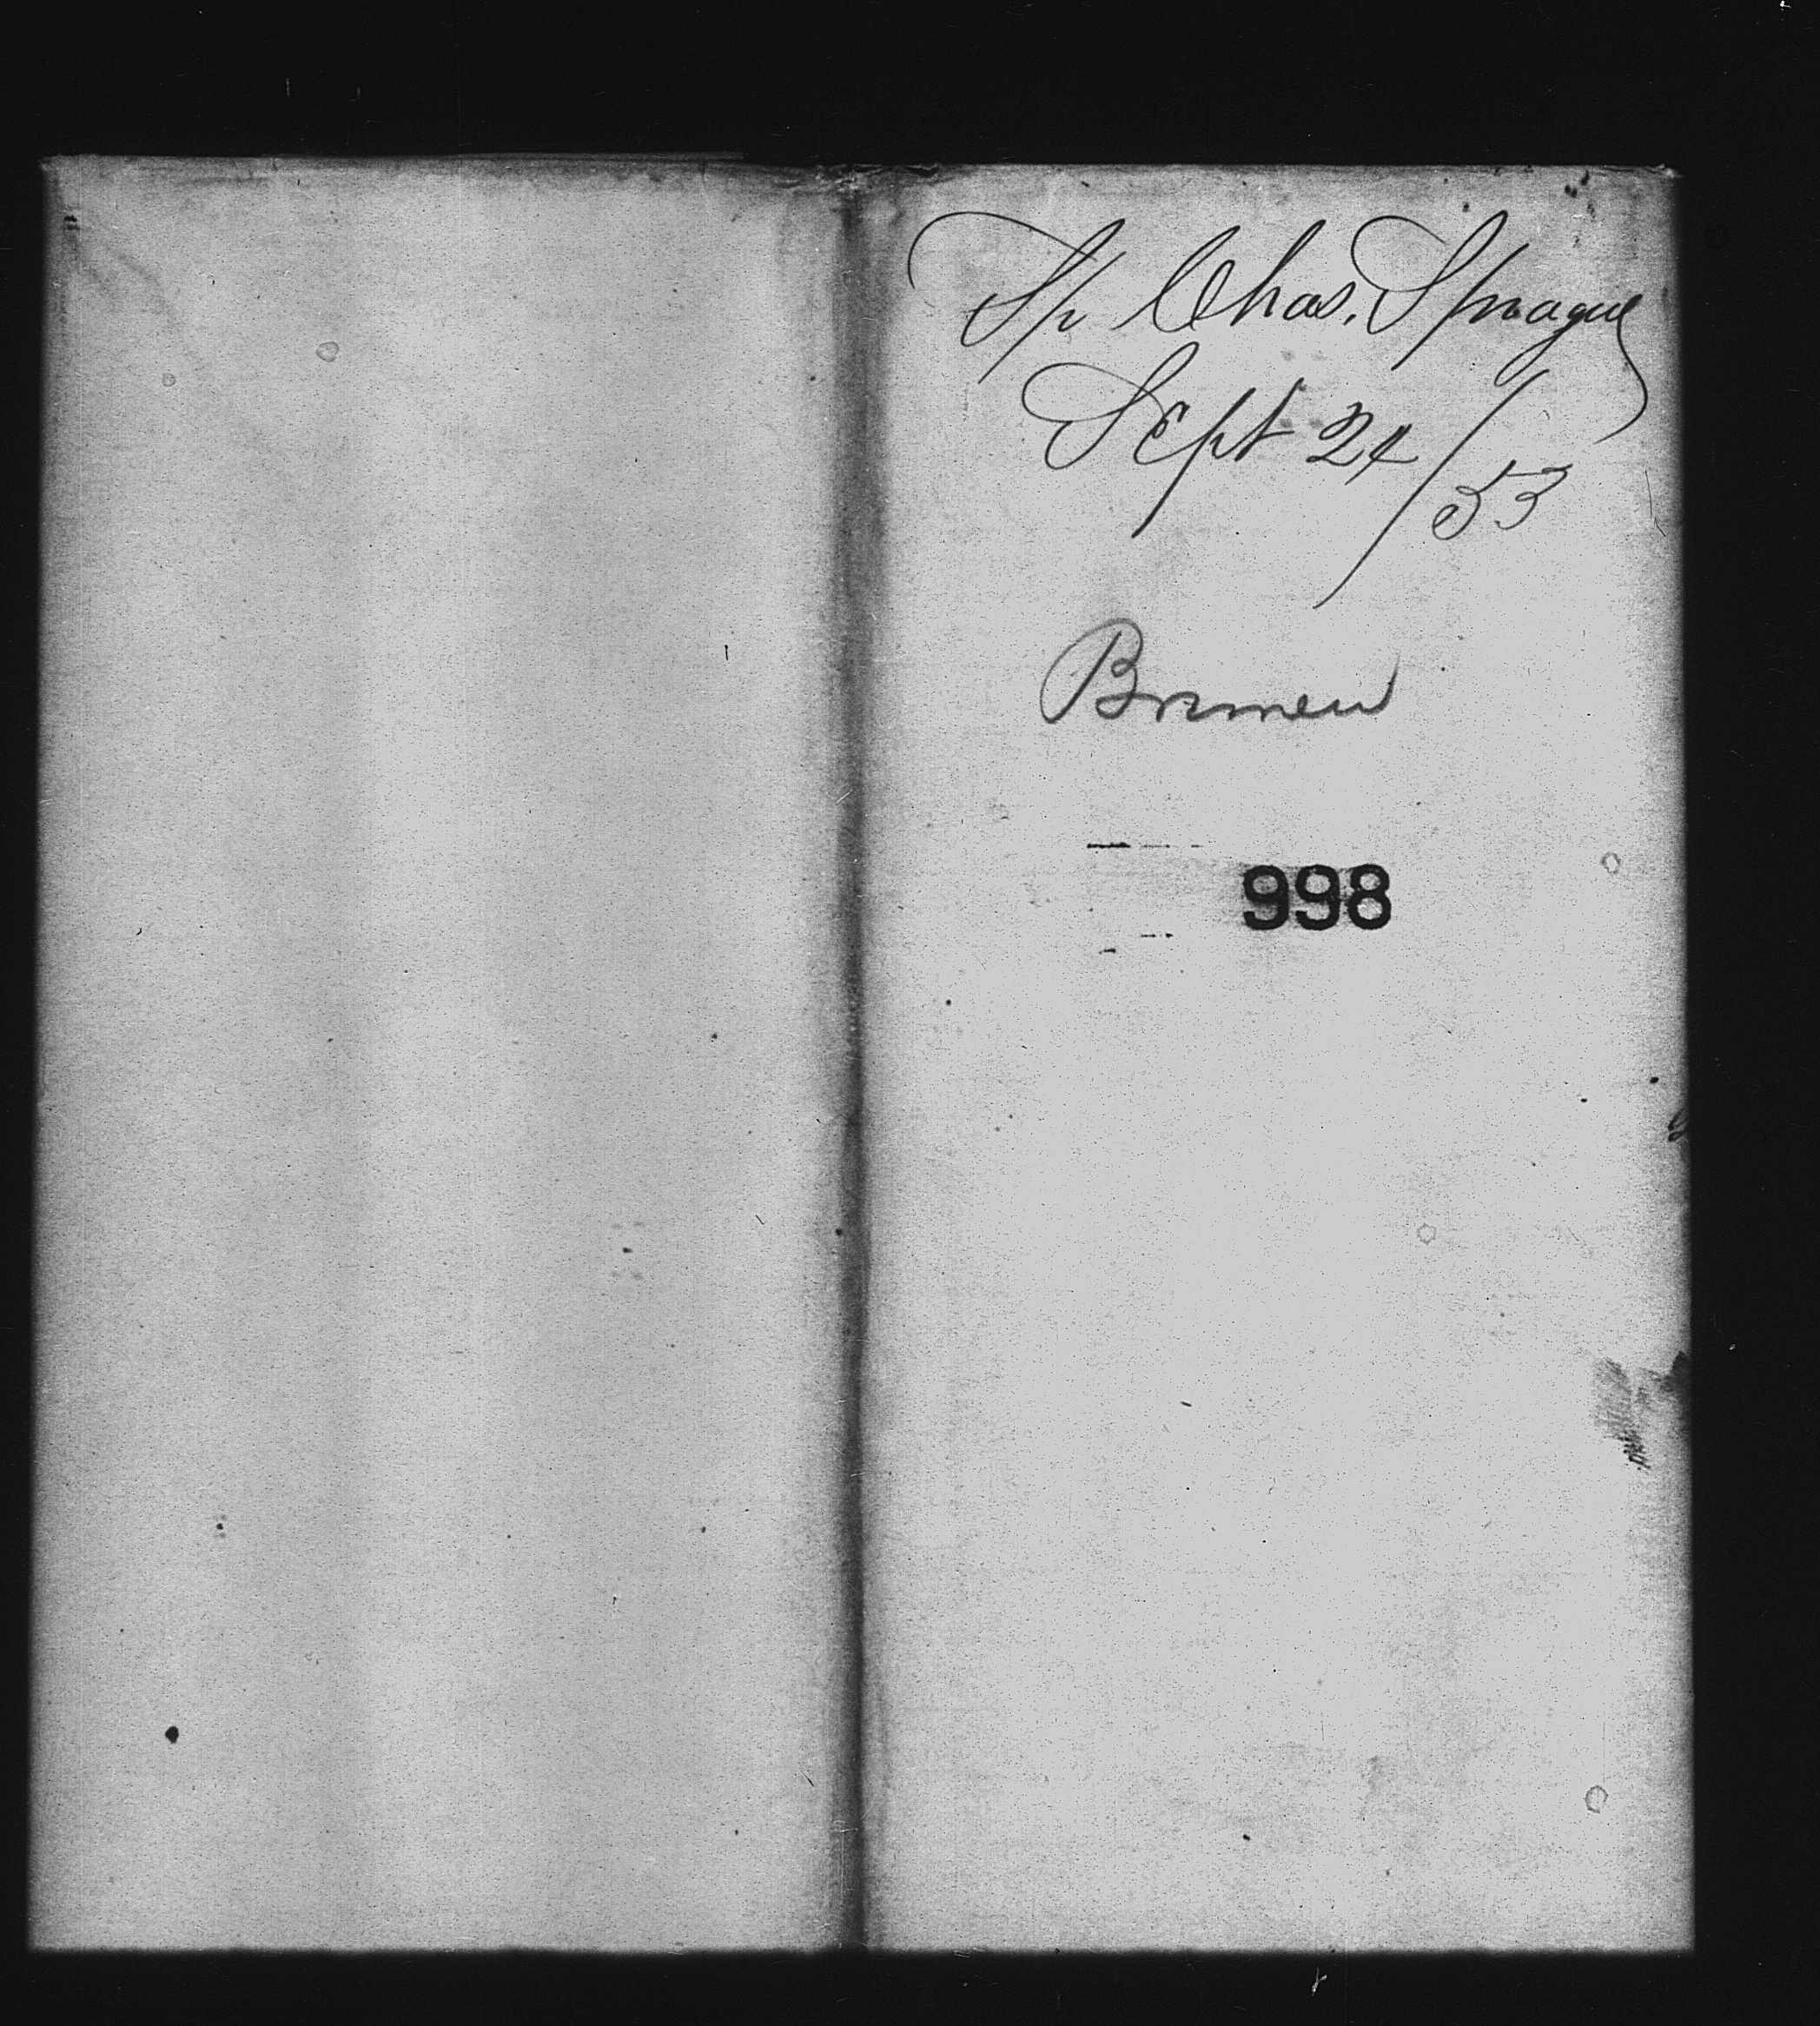 Sp Chas. Sprague
Sept 24/53
Bremen
998